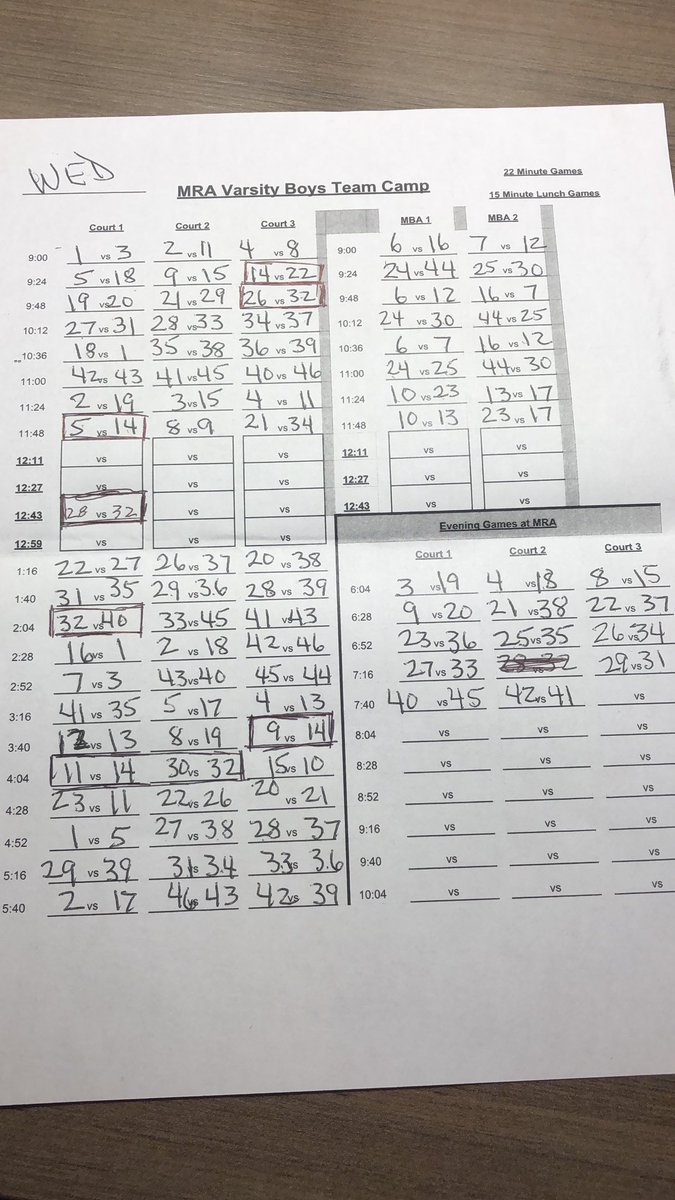 WED
22 Minute Games
MRA Varsity Boys Team Camp
15 Minute Lunch Games
Court 1 Court 2 Court 3
9:00 1 vs 3 2 vs 11 4 vs 8
9:24 5 vs 18 9 vs 15 14 vs 22
9:48 19 vs 20 21 vs 29 26 vs 32
10:12 27 vs 31 28 vs 33 34 vs 37
10:36 18 vs 1 35 vs 38 36 vs 39
11:00 42 vs 43 41 vs 45 40 vs 46
11:24 2 vs 19 3 vs 15 4 vs 11
11:48 5 vs 14 8 vs 9 21 vs 34
12:11 vs vs vs
12:27 vs vs vs
12:43 28 vs 32 vs vs
12:59 vs vs vs
1:16 22 vs 27 26 vs 37 20 vs 38
1:40 31 vs 35 29 vs 36 28 vs 39
2:04 32 vs 40 33 vs 45 41 vs 43
2:28 16 vs 1 2 vs 18 42 vs 46
2:52 7 vs 3 43 vs 40 45 vs 44
3:16 41 vs 35 5 vs 17 4 vs 13
3:40 12 vs 13 8 vs 19 9 vs 14
4:04 11 vs 14 30 vs 32 15 vs 10
4:28 23 vs 11 22 vs 26 20 vs 21
4:52 1 vs 5 27 vs 38 28 vs 37
5:16 29 vs 39 31 vs 34 33 vs 36
5:40 2 vs 17 46 vs 43 42 vs 39
MBA 1 MBA 2
9:00 6 vs 16 7 vs 12
9:24 24 vs 44 25 vs 30
9:48 6 vs 12 16 vs 7
10:12 24 vs 30 44 vs 25
10:36 6 vs 7 16 vs 12
11:00 24 vs 25 44 vs 30
11:24 10 vs 23 13 vs 17
11:48 10 vs 13 23 vs 17
12:11 vs vs
12:27 vs vs
12:43 vs vs
Evening Games at MRA
Court 1 Court 2 Court 3
6:04 3 vs 19 4 vs 18 8 vs 15
6:28 9 vs 20 21 vs 38 22 vs 37
6:52 23 vs 36 25 vs 35 26 vs 34
7:16 27 vs 33 28 vs 32 29 vs 31
7:40 40 vs 45 42 vs 41 vs
8:04 vs vs vs
8:28 vs vs vs
8:52 vs vs vs
9:16 vs vs vs
9:40 vs vs vs
10:04 vs vs vs